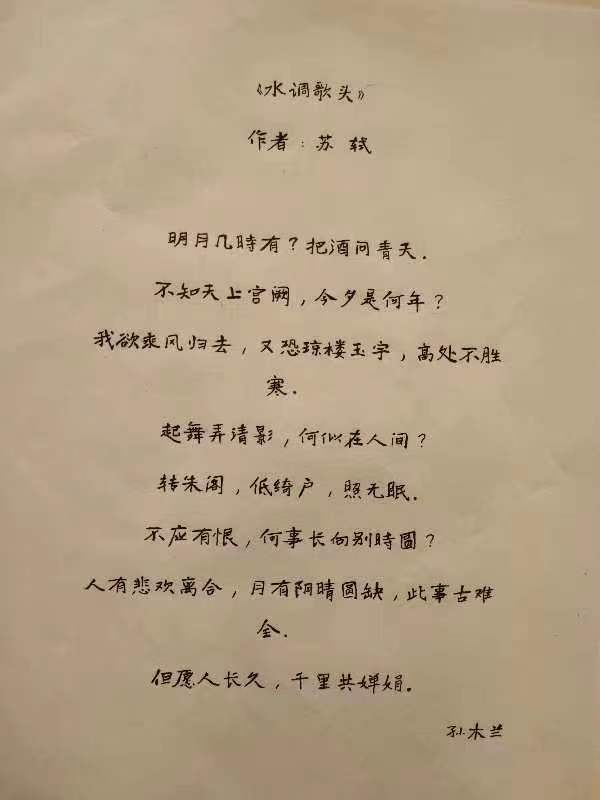 《水调歌头》
作者：苏轼
明月几時有？把酒问青天.
不知天上宫阙，今夕是何年？
我欲乘风归去，又恐琼楼玉宇，高处不胜
寒.
起舞弄清影，何似在人间？
转朱阁，低绮户，照无眠.
不应有恨，何事长向别時圆？
人有悲欢离合，月有阴晴圆缺，此事古难
全.
但愿人长久，千里共婵娟。
孙木兰